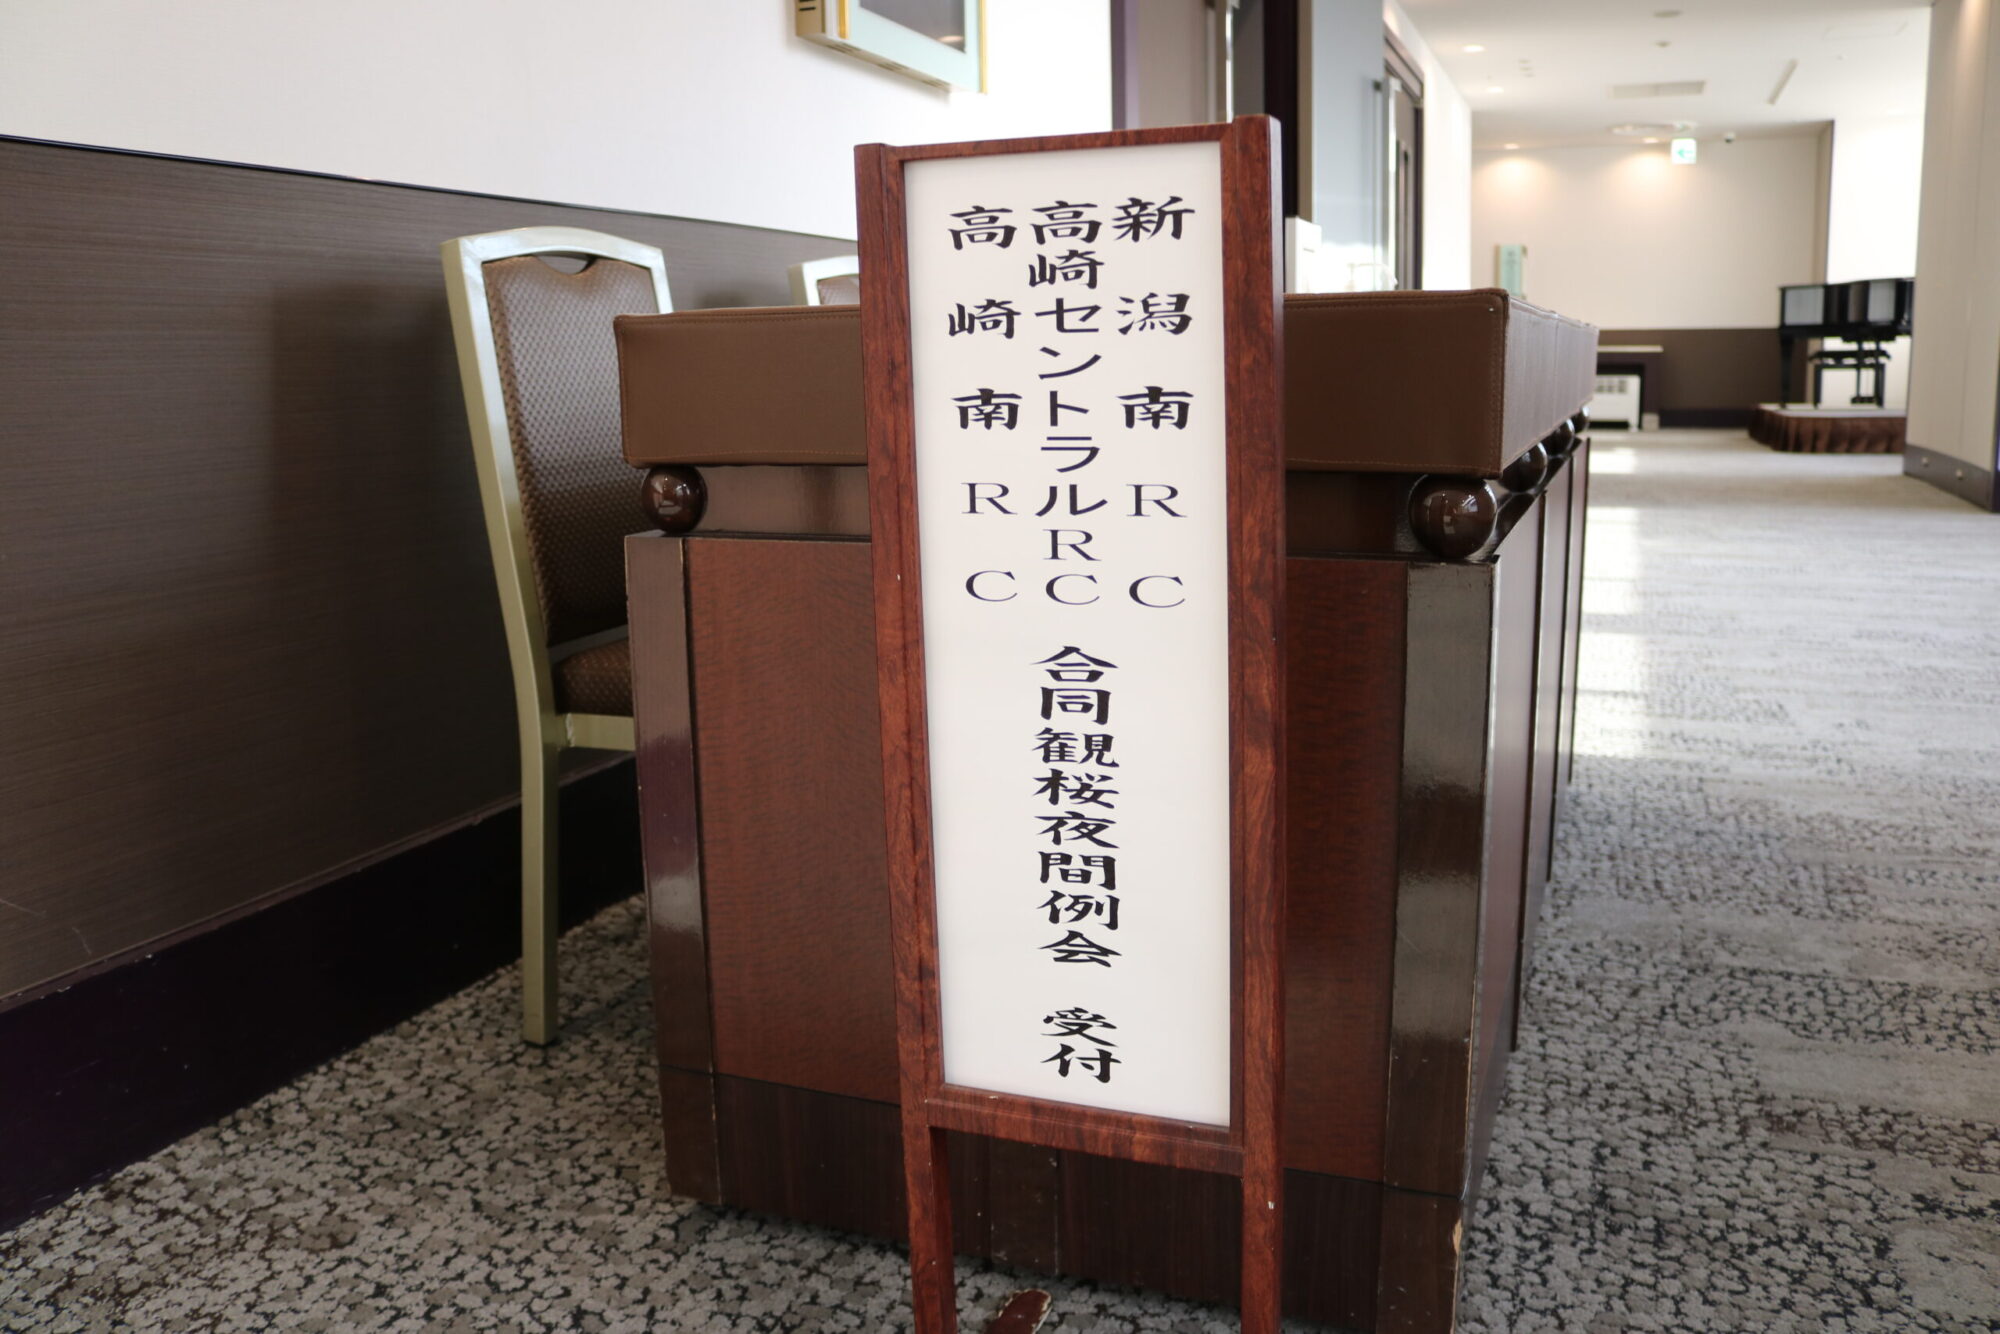 新潟南RC
高崎セントラルRC
高崎南RC
合同観桜夜間例会 受付